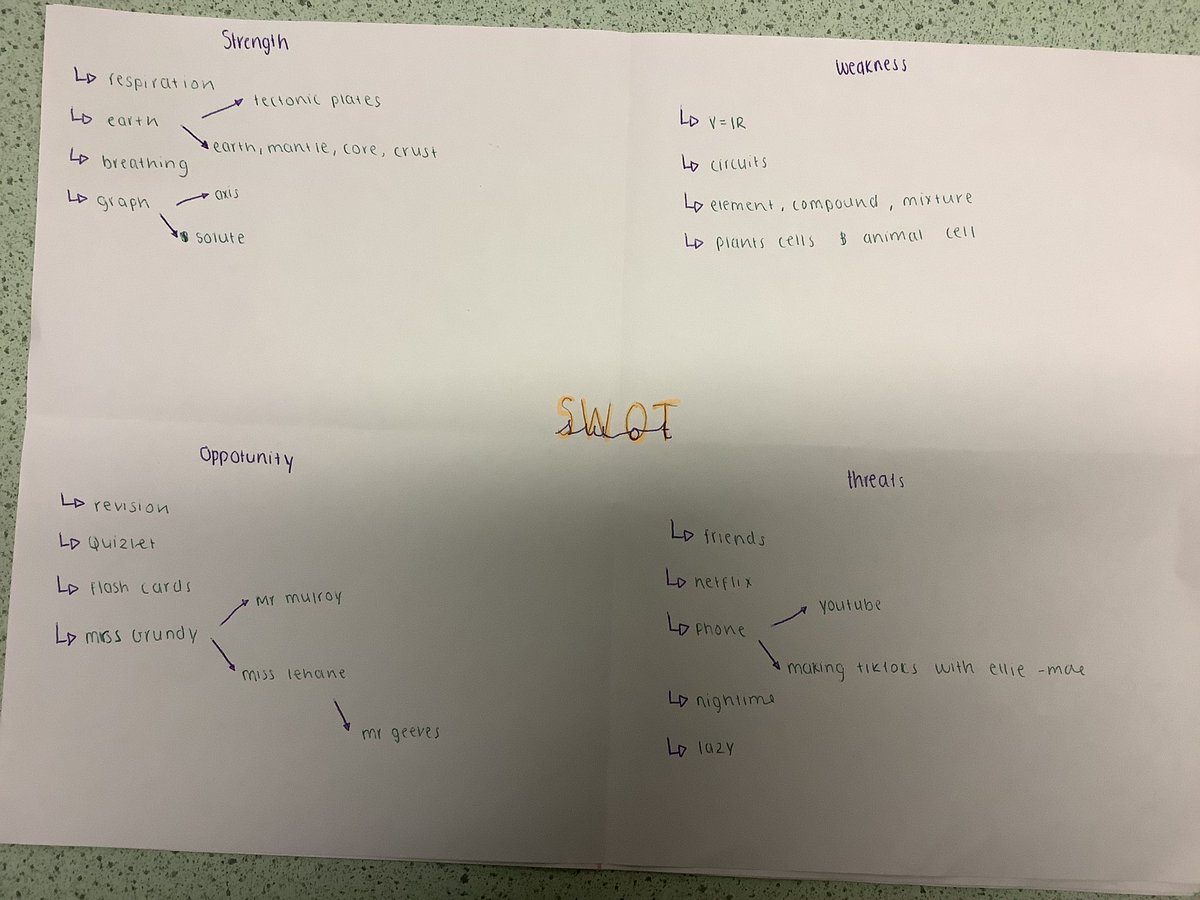 Strength
respiration
earth
tectonic plates
earth, mantle, core, crust
breathing
graph
axis
solute
weakness
V=IR
circuits
element, compound, mixture
plants cells & animal cell
SWOT
Oppotunity
revision
Quizlet
flash cards
miss Grundy
Mr mulroy
miss lehane
mr geeves
threats
friends
netflix
phone
youtube
making tiktoks with ellie -mae
nightime
lazy